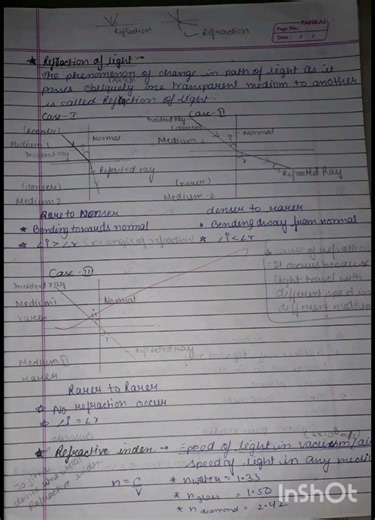 Reflection Refraction
Page No.:
Date:
★ Reflaction of light →
The phenomenon of change in path of light as it
passes obliquely one transparent medium to another
is called Reflaction of light.
Case-I
Case-II
(rarer)
Medium 1
Incident ray
Normal
Refracted ray
(denser)
Medium 2
Incident Ray
(denser)
Medium 1
Normal
(rarer)
Medium-2
Refracted Ray
Rare to Denser
★ Bending towards normal
★ ∠i > ∠r (∠r angle of refraction)
denser to rarer
★ Bending away from normal
★ ∠i < ∠r
Case-III
Incident ray
Medium I
rarer
Normal
Medium II
rarer
Refracted ray
cause of refraction
It occurs because
light travel with
different speed in
different
Rarer to Rarer
★ No refraction occur
★ ∠i = ∠r
★ Refractive index → Speed of light in vacuum/
speed of light in any
n = c/v
★ n water = 1.33
★ n glass = 1.50
★ n diamond = 2.42
InShOt